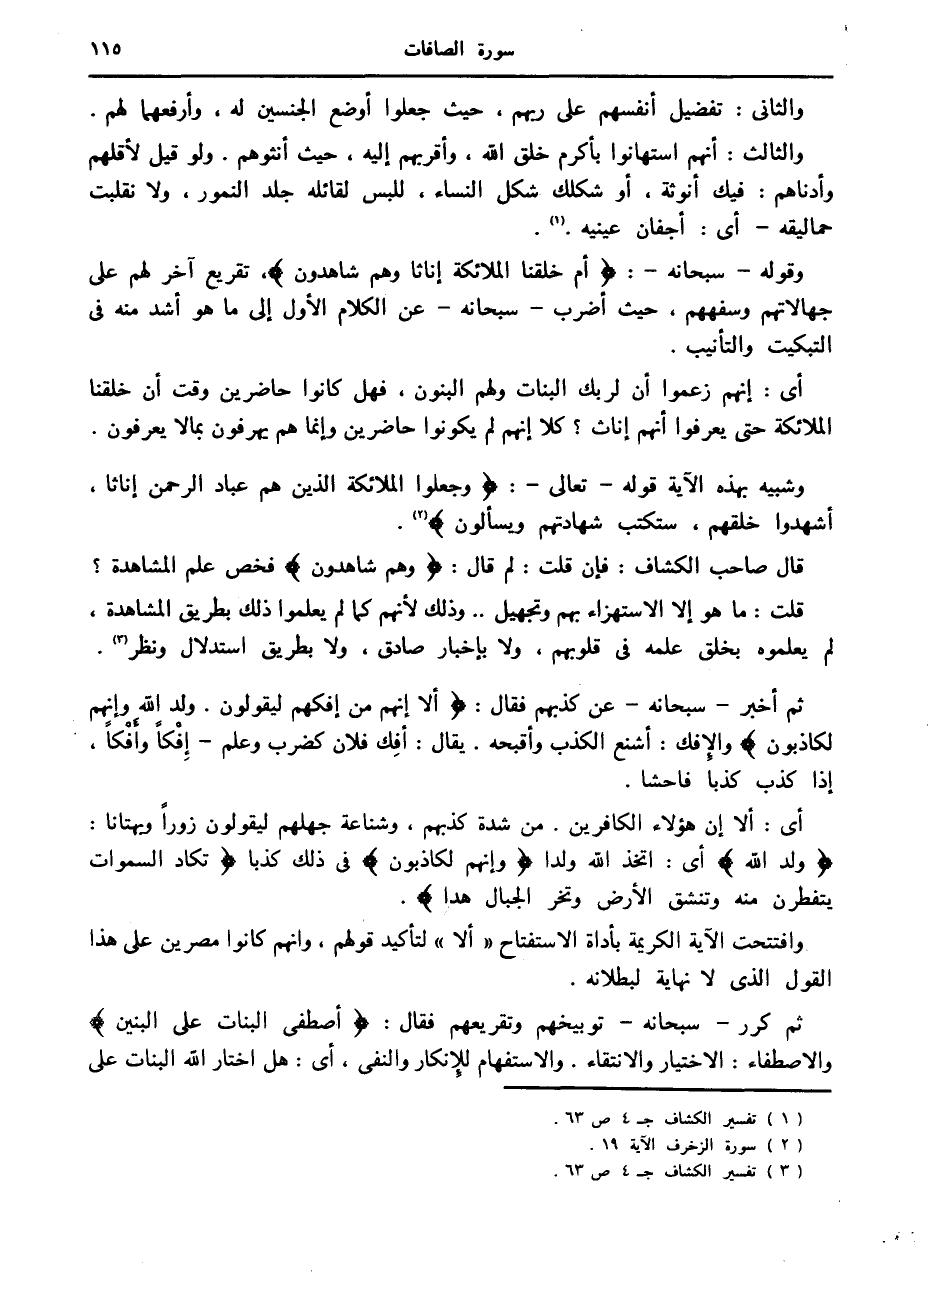 سورة الصافات ١١٥
والثانى : تفضيل أنفسهم على ربهم ، حيث جعلوا أوضع الجنسين له ، وأرفعهما لهم .
والثالث : أنهم استهانوا بأكرم خلق الله ، وأقربهم إليه ، حيث أنثوهم . ولو قيل لأقلهم
وأدناهم : فيك أنوثة ، أو شكلك شكل النساء ، للبس لقائله جلد النمور ، ولا نقلبت
حماليقه – أى : أجفان عينيه .(١) .
وقوله – سبحانه – : ﴿ أم خلقنا الملائكة إناثا وهم شاهدون ﴾، تقريع آخر لهم على
جهالاتهم وسفههم ، حيث أضرب – سبحانه – عن الكلام الأول إلى ما هو أشد منه فى
التبكيت والتأنيب .
أى : إنهم زعموا أن لربك البنات ولهم البنون ، فهل كانوا حاضرين وقت أن خلقنا
الملائكة حتى يعرفوا أنهم إناث ؟ كلا إنهم لم يكونوا حاضرين وإنما هم يهرفون بمالا يعرفون .
وشبيه بهذه الآية قوله – تعالى – : ﴿ وجعلوا الملائكة الذين هم عباد الرحمن إناثا ،
أشهدوا خلقهم ، ستكتب شهادتهم ويسألون ﴾(٢) .
قال صاحب الكشاف : فإن قلت : لم قال : ﴿ وهم شاهدون ﴾ فخص علم المشاهدة ؟
قلت : ما هو إلا الاستهزاء بهم وتجهيل .. وذلك لأنهم كما لم يعلموا ذلك بطريق المشاهدة ،
لم يعلموه بخلق علمه فى قلوبهم ، ولا بإخبار صادق ، ولا بطريق استدلال ونظر(٣) .
ثم أخبر – سبحانه – عن كذبهم فقال : ﴿ ألا إنهم من إفكهم ليقولون . ولد الله وإنهم
لكاذبون ﴾ والإفك : أشنع الكذب وأقبحه . يقال : أفِك فلان كضرب وعلم – إِفْكاً وأَفْكاً ،
إذا كذب كذبا فاحشا .
أى : ألا إن هؤلاء الكافرين . من شدة كذبهم ، وشناعة جهلهم ليقولون زوراً وبهتانا :
﴿ ولد الله ﴾ أى : اتخذ الله ولدا ﴿ وإنهم لكاذبون ﴾ فى ذلك كذبا ﴿ تكاد السموات
يتفطرن منه وتنشق الأرض وتخر الجبال هدا ﴾ .
وافتتحت الآية الكريمة بأداة الاستفتاح « ألا » لتأكيد قولهم ، وانهم كانوا مصرين على هذا
القول الذى لا نهاية لبطلانه .
ثم كرر – سبحانه – توبيخهم وتقريعهم فقال : ﴿ أصطفى البنات على البنين ﴾
والاصطفاء : الاختيار والانتقاء . والاستفهام للإنكار والنفى ، أى : هل اختار الله البنات على
( ١ ) تفسير الكشاف جـ ٤ ص ٦٣ .
( ٢ ) سورة الزخرف الآية ١٩ .
( ٣ ) تفسير الكشاف جـ ٤ ص ٦٣ .